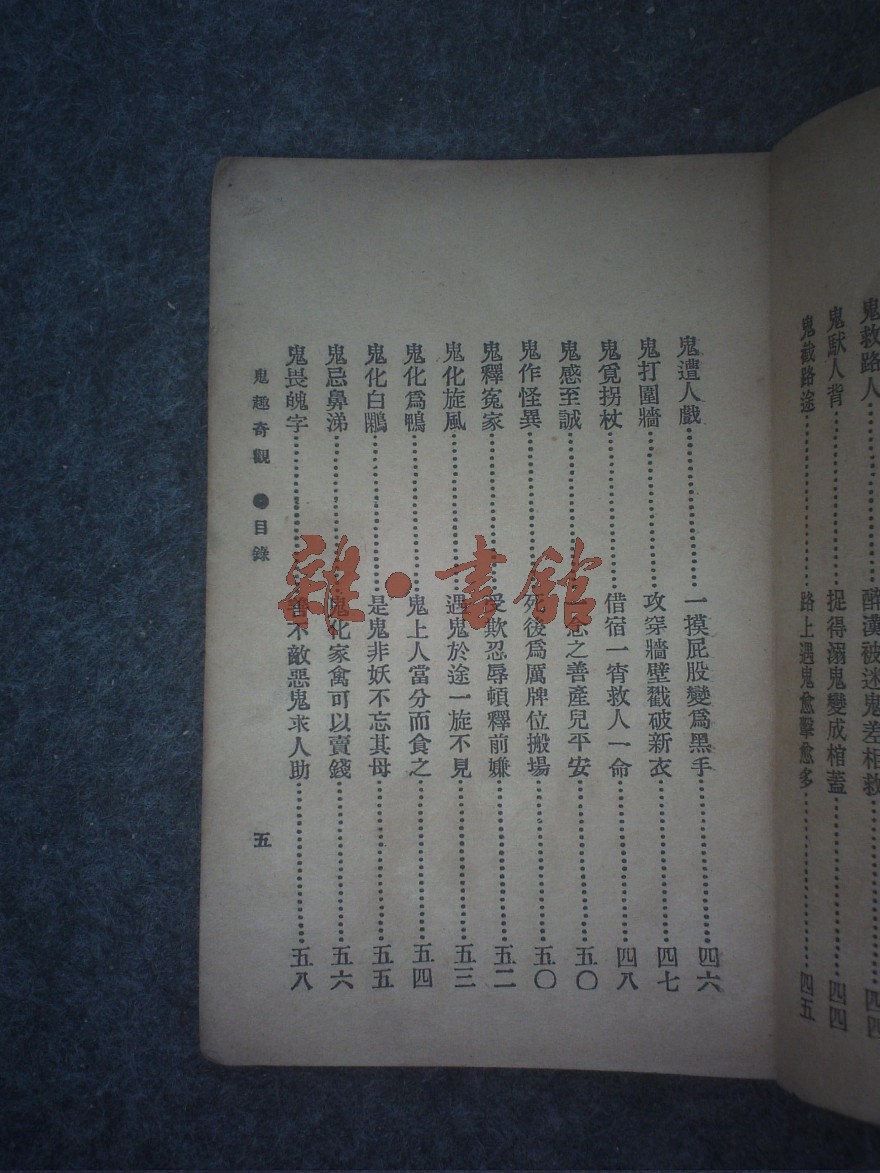 鬼救路人……醉漢被迷鬼差相救……四四
鬼馱人背……捉得溺鬼變成棺蓋……四四
鬼截路途……路上遇鬼愈擊愈多……四五
鬼遭人戲……一摸屁股變爲黑手……四六
鬼打圍牆……攻穿牆壁戳破新衣……四七
鬼覓拐杖……借宿一宵救人一命……四八
鬼感至誠……一念之善產兒平安……五〇
鬼作怪異……死後爲厲牌位搬場……五〇
鬼釋寃家……受欺忍辱頓釋前嫌……五二
鬼化旋風……遇鬼於途一旋不見……五三
鬼化爲鴨……鬼上人當分而食之……五四
鬼化白鷳……是鬼非妖不忘其母……五五
鬼忌鼻涕……鬼化家禽可以賣錢……五六
鬼畏魄字……善不敵惡鬼求人助……五八
鬼趣奇觀 ●目錄 五
雜·書館